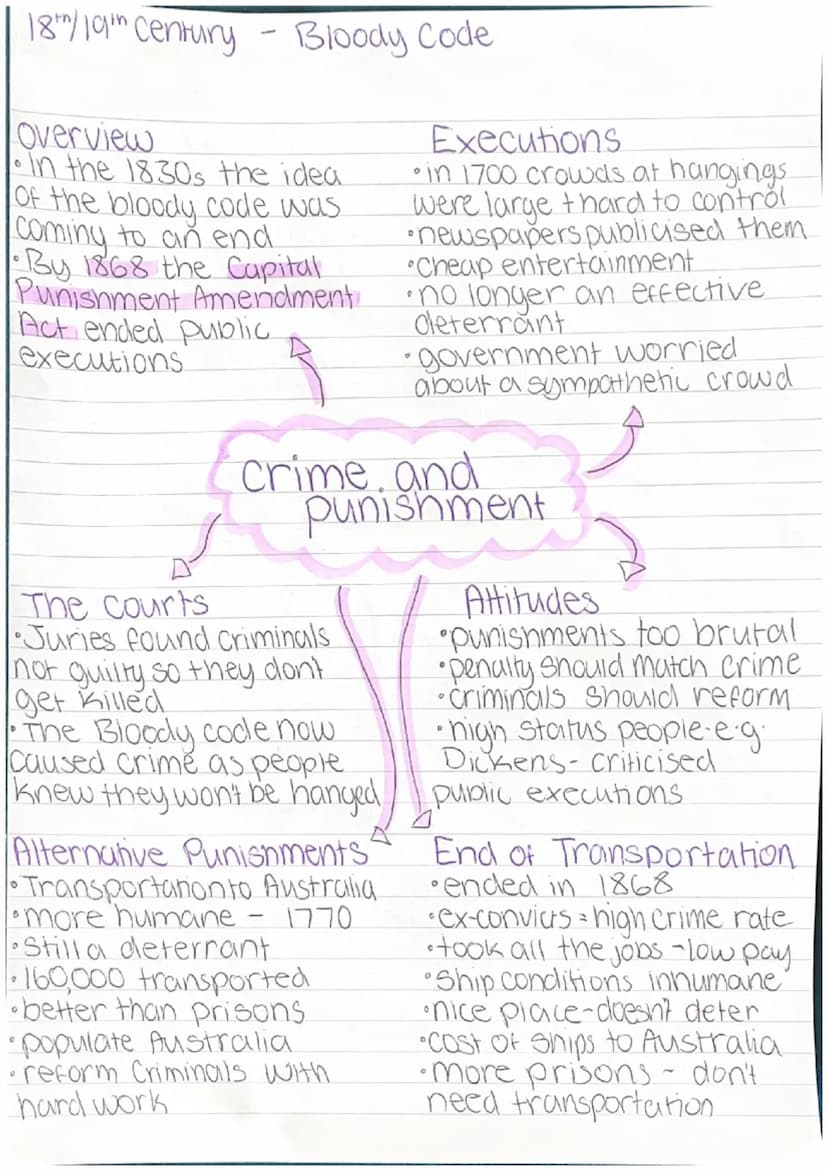 18th/19th Century - Bloody Code
Overview
• In the 1830s the idea
of the bloody code was
coming to an end
• By 1868 the Capital
Punishment Amendment
Act ended public
executions
Executions
• in 1700 crowds at hangings
were large + hard to control
• newspapers publicised them
• cheap entertainment
• no longer an effective
deterrant
• government worried
about a sympathetic crowd
crime and
punishment
The Courts
• Juries found criminals
not guilty so they don't
get killed
• The Bloody code now
caused crime as people
knew they won't be hanged
Attitudes
• punishments too brutal
• penalty should match crime
• criminals should reform
• high status people-e.g.
Dickens - criticised
public executions
Alternative Punishments
• Transportation to Australia
• more humane - 1770
• still a deterrant
• 160,000 transported
• better than prisons
• populate Australia
• reform criminals with
hard work
End of Transportation
• ended in 1868
• ex-convicts = high crime rate
• took all the jobs - low pay
• ship conditions inhumane
• nice place - doesn't deter
• cost of ships to Australia
• more prisons - don't
need transportation